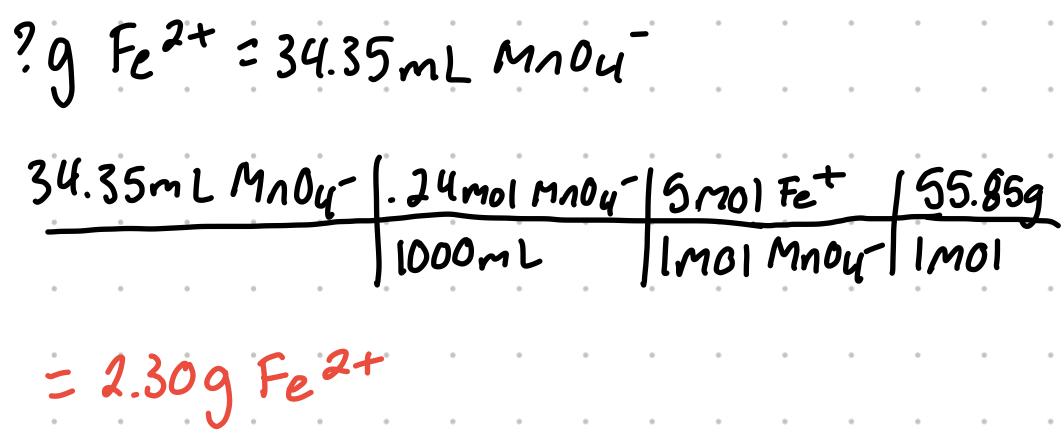 ? g Fe²⁺ = 34.35mL MnO₄⁻
34.35mL MnO₄⁻ | .24mol MnO₄⁻ | 5mol Fe⁺ | 55.85g
1000mL | 1mol MnO₄⁻ | 1mol
= 2.30g Fe²⁺